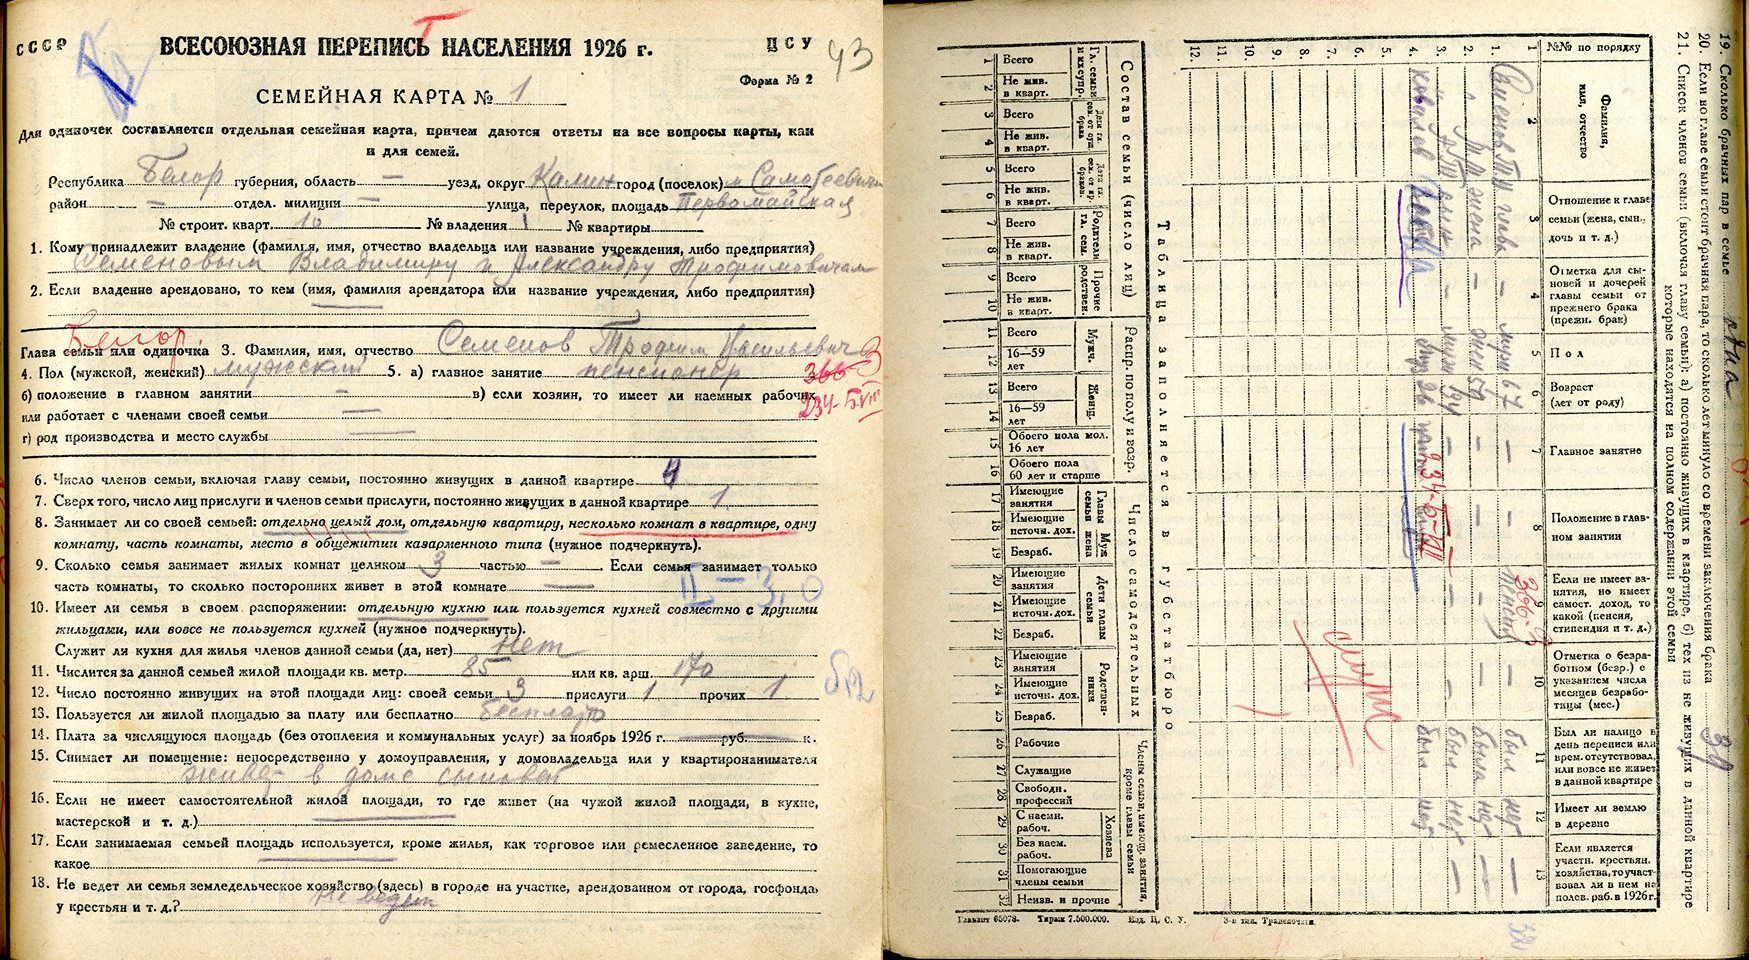 СССР
ВСЕСОЮЗНАЯ ПЕРЕПИСЬ НАСЕЛЕНИЯ 1926 г.
ЦСУ
43
Форма № 2
СЕМЕЙНАЯ КАРТА № 1
Для одиночек составляется отдельная семейная карта, причем даются ответы на все вопросы карты, как
и для семей.
Республика Белор губерния, область — уезд, округ Калин город (поселок) м Самотеевичи
район — отдел. милиции — улица, переулок, площадь Первомайская
№ строит. кварт. 10 № владения 1 № квартиры
1. Кому принадлежит владение (фамилия, имя, отчество владельца или название учреждения, либо предприятия)
Семеновым Владимиру и Александру Трофимовичам
2. Если владение арендовано, то кем (имя, фамилия арендатора или название учреждения, либо предприятия)
Белор.
Глава семьи или одиночка 3. Фамилия, имя, отчество Семенов Трофим Васильевич
4. Пол (мужской, женский) мужской 5. а) главное занятие пенсионер
366-3
б) положение в главном занятии — в) если хозяин, то имеет ли наемных рабочих
или работает с членами своей семьи —
г) род производства и место службы
6. Число членов семьи, включая главу семьи, постоянно живущих в данной квартире 4
7. Сверх того, число лиц прислуги и членов семьи прислуги, постоянно живущих в данной квартире 1
8. Занимает ли со своей семьей: отдельно целый дом, отдельную квартиру, несколько комнат в квартире, одну
комнату, часть комнаты, место в общежитии казарменного типа (нужное подчеркнуть).
9. Сколько семья занимает жилых комнат целиком 3 частью — Если семья занимает только
часть комнаты, то сколько посторонних живет в этой комнате
II — 3,0
10. Имеет ли семья в своем распоряжении: отдельную кухню или пользуется кухней совместно с другими
жильцами, или вовсе не пользуется кухней (нужное подчеркнуть).
Служит ли кухня для жилья членов данной семьи (да, нет) нет
11. Числится за данной семьей жилой площади кв. метр. 85 или кв. арш. 170
12. Число постоянно живущих на этой площади лиц: своей семьи 3 прислуги 1 прочих 1
13. Пользуется ли жилой площадью за плату или бесплатно бесплатно
14. Плата за числящуюся площадь (без отопления и коммунальных услуг) за ноябрь 1926 г. руб. к.
15. Снимает ли помещение: непосредственно у домоуправления, у домовладельца или у квартиронанимателя
живет в доме сыновей
16. Если не имеет самостоятельной жилой площади, то где живет (на чужой жилой площади, в кухне,
мастерской и т. д.)
17. Если занимаемая семьей площадь используется, кроме жилья, как торговое или ремесленное заведение, то
какое
18. Не ведет ли семья земледельческое хозяйство (здесь) в городе на участке, арендованном от города, госфонда,
у крестьян и т. д.? не ведет
19. Сколько брачных пар в семье одна
20. Если во главе семьи стоит брачная пара, то сколько лет минуло со времени заключения брака 39
21. Список членов семьи (включая главу семьи): а) постоянно живущих в квартире, б) тех из не живущих в данной квартире
которые находятся на полном содержании этой семьи
№№ по порядку
Фамилия, имя, отчество
Отношение к главе семьи (жена, сын, дочь и т. д.)
Отметка для сыновей и дочерей главы семьи от прежнего брака (прежн. брак)
Пол
Возраст (лет от роду)
Главное занятие
Положение в главном занятии
Если не имеет занятия, но имеет самост. доход, то какой (пенсия, стипендия и т. д.)
Отметка о безработном (безр.) с указанием числа месяцев безработицы (мес.)
Был ли налицо в день переписи или врем. отсутствовал, или вовсе не живет в данной квартире
Имеет ли землю в деревне
Если является участн. крестьян. хозяйства, то участвовал ли в нем на полев. раб. в 1926 г.
1 2 3 4 5 6 7 8 9 10 11 12 13
1. Семенов Т. В. глава — муж 67 — — — был нет —
2. жена — жен 59 — — — была нет —
3. муж — — — был нет —
4. Ковалев муж 26 был нет
234-5-VII
366-3
5.
6.
7.
8.
9.
10.
11.
12.
Таблица заполняется в губстатбюро
Состав семьи (число лиц)
Распр. по полу и возр.
Число самодеятельных
Члены семьи, имеющ. занятия, кроме главы семьи
Гл. семьи и их супр.
1 Всего
2 Не жив. в кварт.
3 Всего
4 Не жив. в кварт.
5 Всего
6 Не жив. в кварт.
Родители гл. сем.
7 Всего
8 Не жив. в кварт.
Прочие родствен.
9 Всего
10 Не жив. в кварт.
Мужч.
11 Всего
12 16—59 лет
Женщ.
13 Всего
14 16—59 лет
15 Обоего пола мол. 16 лет
16 Обоего пола 60 лет и старше
Главы семьи
Муж жена
17 Имеющие занятия
18 Имеющие источн. дох.
19 Безраб.
Дети главы семьи
20 Имеющие занятия
21 Имеющие источн. дох.
22 Безраб.
Родственники
23 Имеющие занятия
24 Имеющие источн. дох.
25 Безраб.
26 Рабочие
27 Служащие
28 Свободн. профессий
Хозяева
29 С наемн. рабоч.
30 Без наем. рабоч.
31 Помогающие члены семьи
32 Неизв. и прочие
Главлит 65078. Тираж 7.500.000. Изд. Ц. С. У.